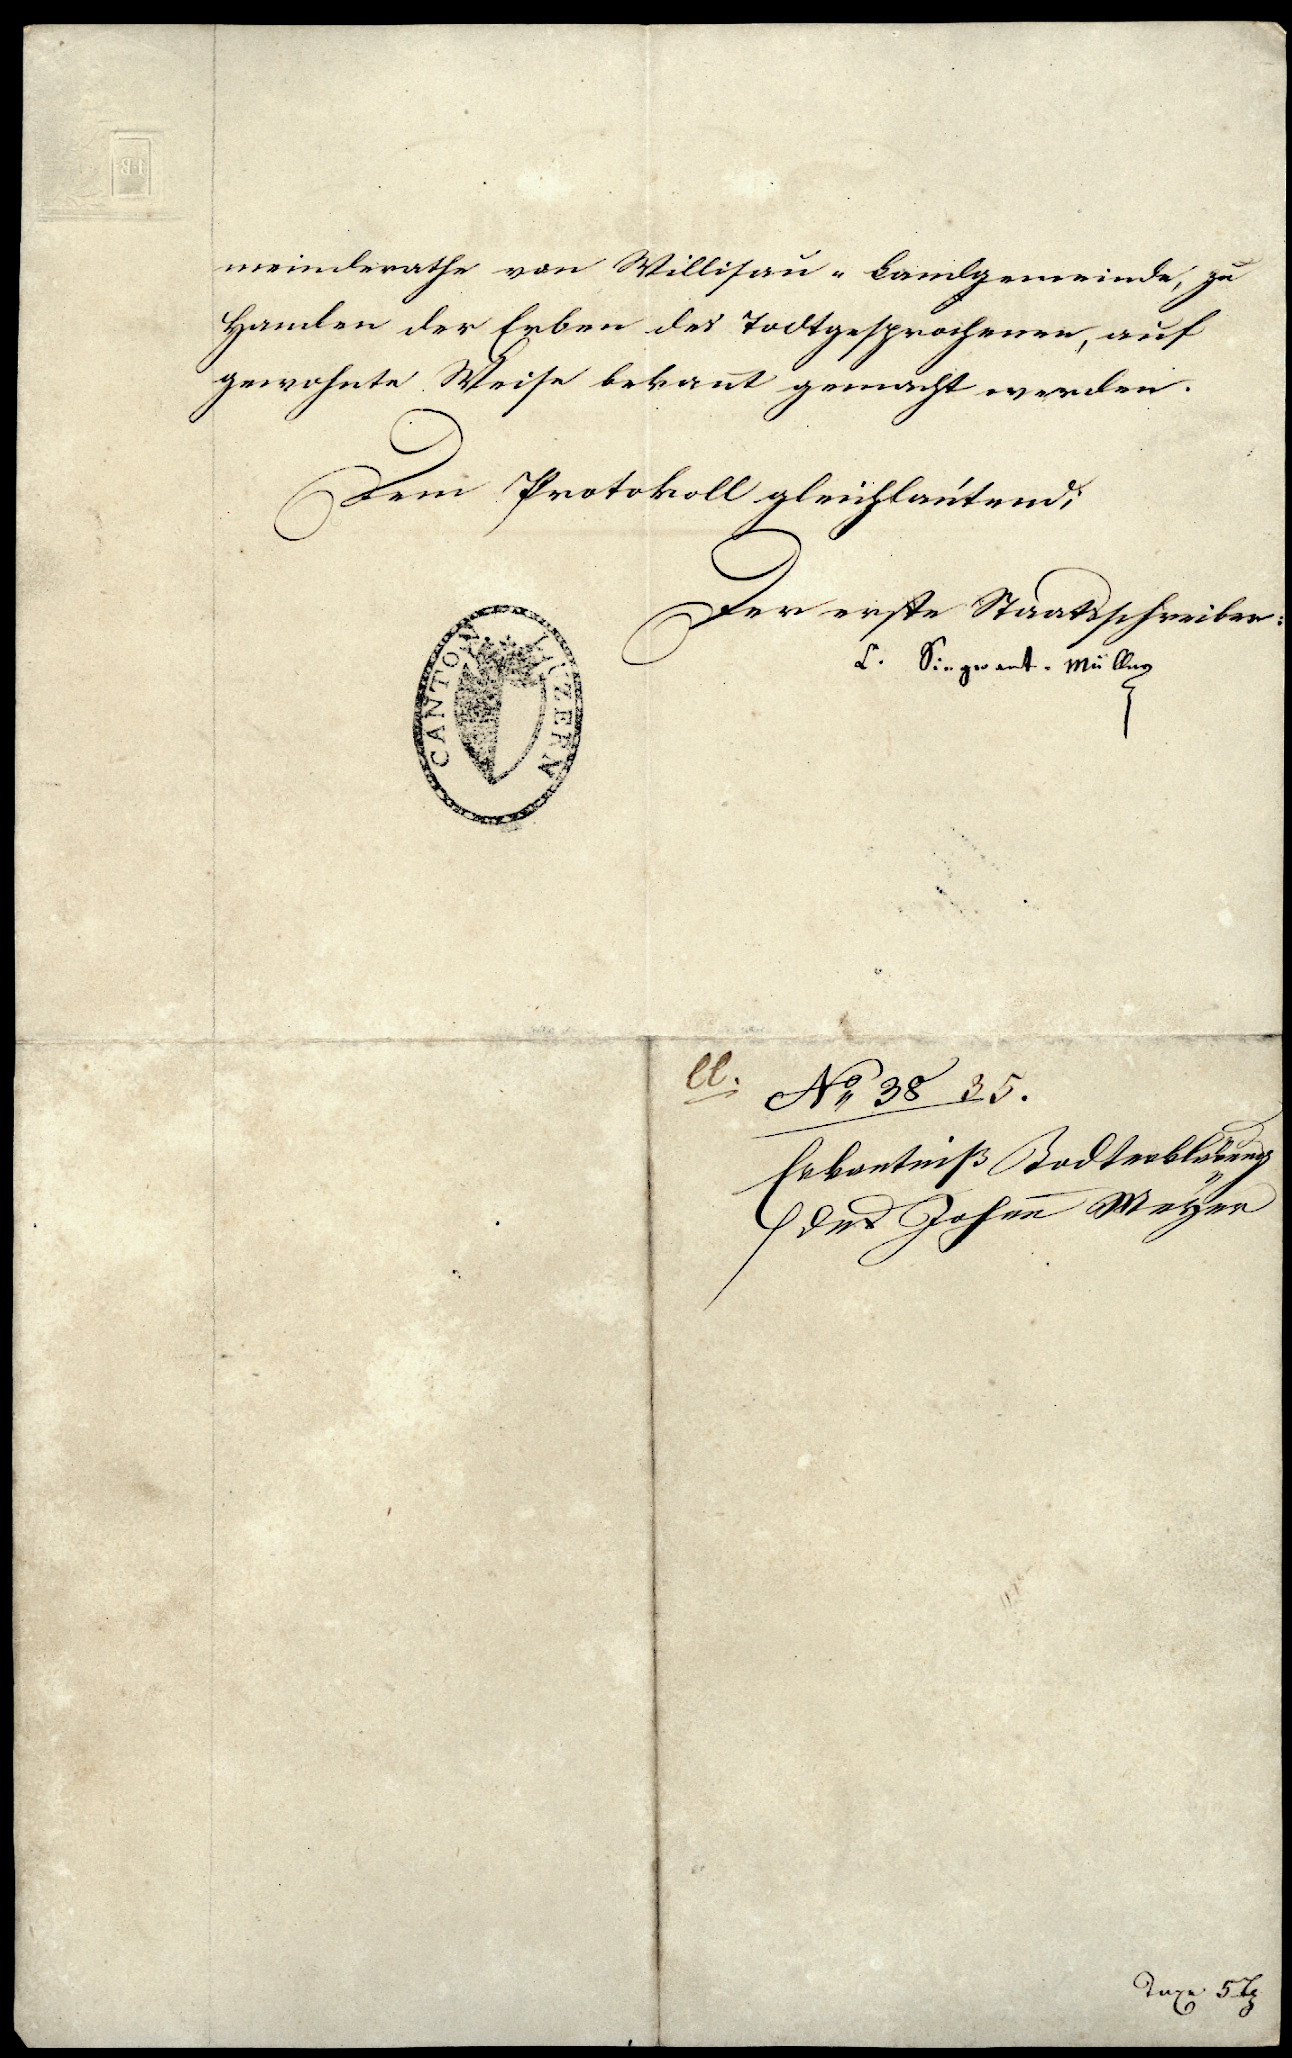 meinderathe von Willisau-Landgemeinde, zu
Handen der Erben des Todtgesprochenen, auf
gewohnte Weise bekañt gemacht werden.
Dem Protokoll gleichlautend;
Der erste Staatsschreiber:
C. Siegwart-Müller
CANTON LUZERN
No 38 35.
Erkantniß Todterklärung
des Johañ Meÿer
Taxe 5